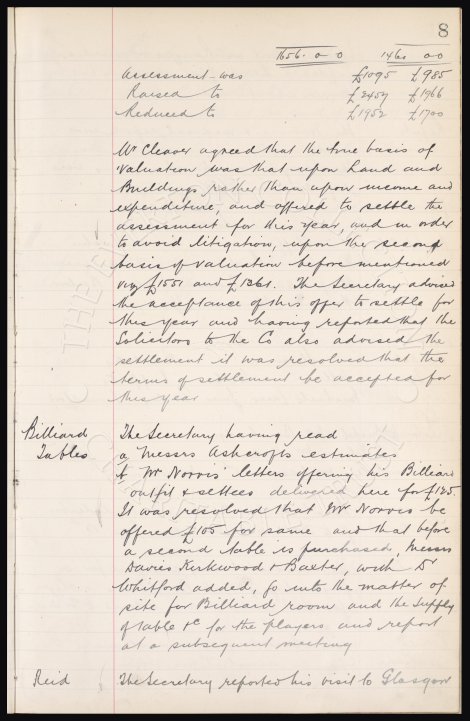 8
1656. 0 0 1460 0 0
Assessment was £1095 £985
Raised to £2457 £1966
Reduced to £1952 £1700
Mr Cleaver agreed that the true basis of
valuation was that upon Land and
Buildings rather than upon income and
expenditure, and offered to settle the
assessment for this year, and in order
to avoid litigation, upon the second
basis of valuation before mentioned
viz £1551 and £1361. The Secretary advised
the acceptance of this offer to settle for
this year and having reported that the
Solicitors to the Co also advised the
settlement it was resolved that the
terms of settlement be accepted for
this year
Billiard Tables
The Secretary having read
a Messrs Ashcrofts estimates
& Mr Norris' letters offering his Billiard
outfit & settees delivered here for £125.
It was resolved that Mr Norris be
offered £105 for same and that before
a second table is purchased, Messrs
Davies Kirkwood & Baxter, with Dr
Whitford added, go into the matter of
site for Billiard room and the supply
of table &c for the players and report
at a subsequent meeting
Reid The Secretary reported his visit to Glasgow